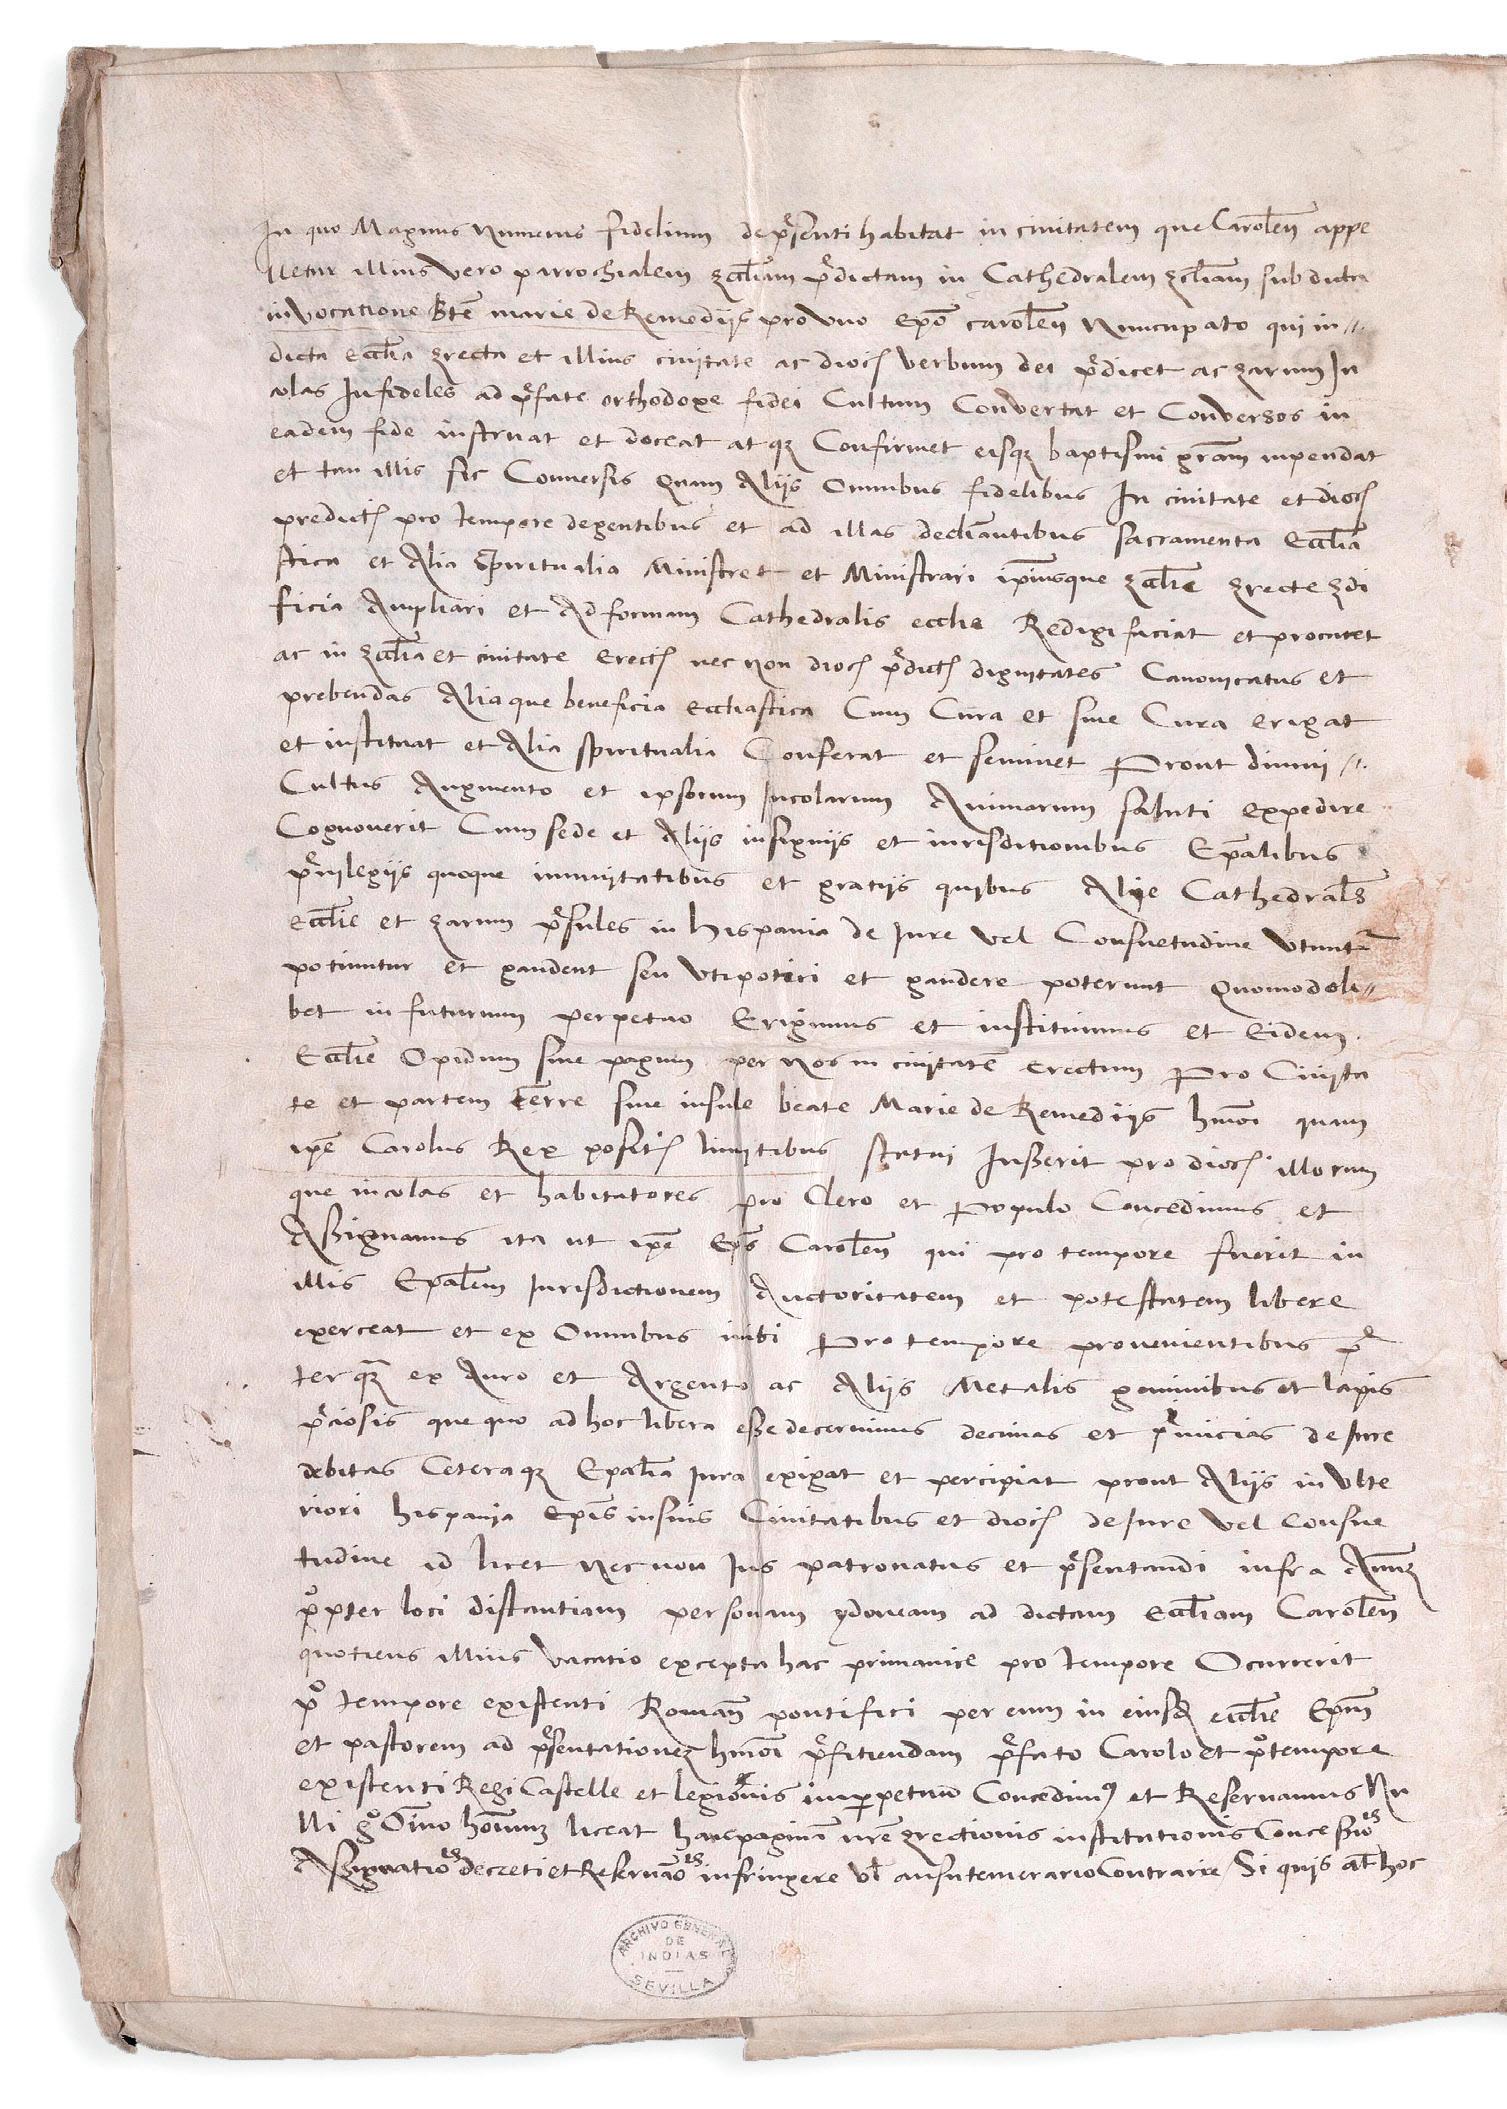 In quo Magnus numerus fidelium de p̃senti habitat in ciuitatem que Carolen̄ appe
lletur illius vero parrochialem eccl̄iam p̃dictam in Cathedralem eccl̄iam sub dicta
invocatione bt̄e marie de Remediis pro vno ep̄o carolen̄ nuncupato qui in
dicta eccl̄ia erecta et illius ciuitate ac dioc̃ verbum dei p̃dicet ac earum In
colas Infideles ad p̃fate orthodoxe fidei Cultum Convertat et Conversos in
eadem fide instruat et doceat atqʒ Confirmet eisqʒ baptismi gr̄am inpendat
et tan illis sic Conversis quam Aliis Omnibus fidelibus In ciuitate et dioc̃
predict̃ pro tempore degentibus et ad illas declinantibus sacramenta Eccl̄ia
stica et Alia Spiritualia Ministret et Ministrari ip̄iusque eccl̄ie erecte edi
ficia Ampliari et Ad formam Cathedralis eccl̄ie Redigi faciat et procuret
ac in eccl̄ia et ciuitate erect̃ nec non dioc̃ p̃dict̃ dignitates Canonicatus et
prebendas Aliaque beneficia eccl̄iastica Cum Cura et sine Cura erigat
et instituat et Alia spiritualia Conferat et seminet Prout diuini
Cultus Augmento et ipsorum Incolarum Animarum saluti expedire
Cognouerit Cum sede et Aliis insigniis et iurisditionibus Ep̄alibus
p̃uilegiis quoque inmunitatibus et gratiis quibus Alie Cathedral̄s
eccl̄ie et earum p̃sules in hispania de Jure vel Consuetudine vtunt᷑
potiuntur et gaudent seu vti potiri et gaudere poterunt quomodoli
bet in futurum perpetuo Erigimus et instituimus et Eidem
Eccl̄ie Opidum siue pagum per nos in ciuitatē erectum Pro Ciuita
te et partem t̄erre siue insule beate Marie de Remediis hm̄oi quam
ip̄e Carolus Rex posit̃ limitibus statui Jusserit pro dioc̃ illorum
que incolas et habitatores pro Clero et Populo Concedimus et
Assignamus ita ut ip̄e Ep̄s Carolen̄ qui pro tempore fuerit in
illis Ep̄alem Jurisdictionem Auctoritatem et potestatem libere
exerceat et ex Omnibus inibi Pro tempore prouenientibus p̃
terq̃ ex Auro et Argento ac Aliis Metalis gemmibus et lapis
p̃ciosis que quo ad hoc libera esse decernimus decimas et p̃micias de Jure
debitas Ceteraqʒ Ep̄alia Jura exigat et percipiat prout Aliis in vlte
riori hispania Ep̄is in suis Ciuitatibus et dioc̃ de Jure vel Consue
tudine id licet nec non Jus patronatus et p̃sentandi infra Annū
p̊pter loci distantiam personam ydoneam ad dictam Eccl̄iam Carolen̄
quotiens illius vacatio excepta hac primaria vice pro tempore Ocurrerit
p̊ tempore existenti Roman̄ pontifici per eum in eiusd̄ eccl̄ie Ep̄m
et pastorem ad p̃sentationeʒ hm̄oi p̃ficiendam p̃fato Carolo et p̊ tempore
existenti Regi Castelle et legionis inperpetuū Concedimꝰ et Reseruamus Nu
lli g̊ Om̄ino hom̄inuʒ liceat hanc paginā nr̄e erectionis institutionis Concessioīs
Assignatioīs decreti et Reseruatōis infringere vl̄ ausu temerario Contraire Si quis aūt hoc
ARCHIVO GENERAL
DE
INDIAS
SEVILLA